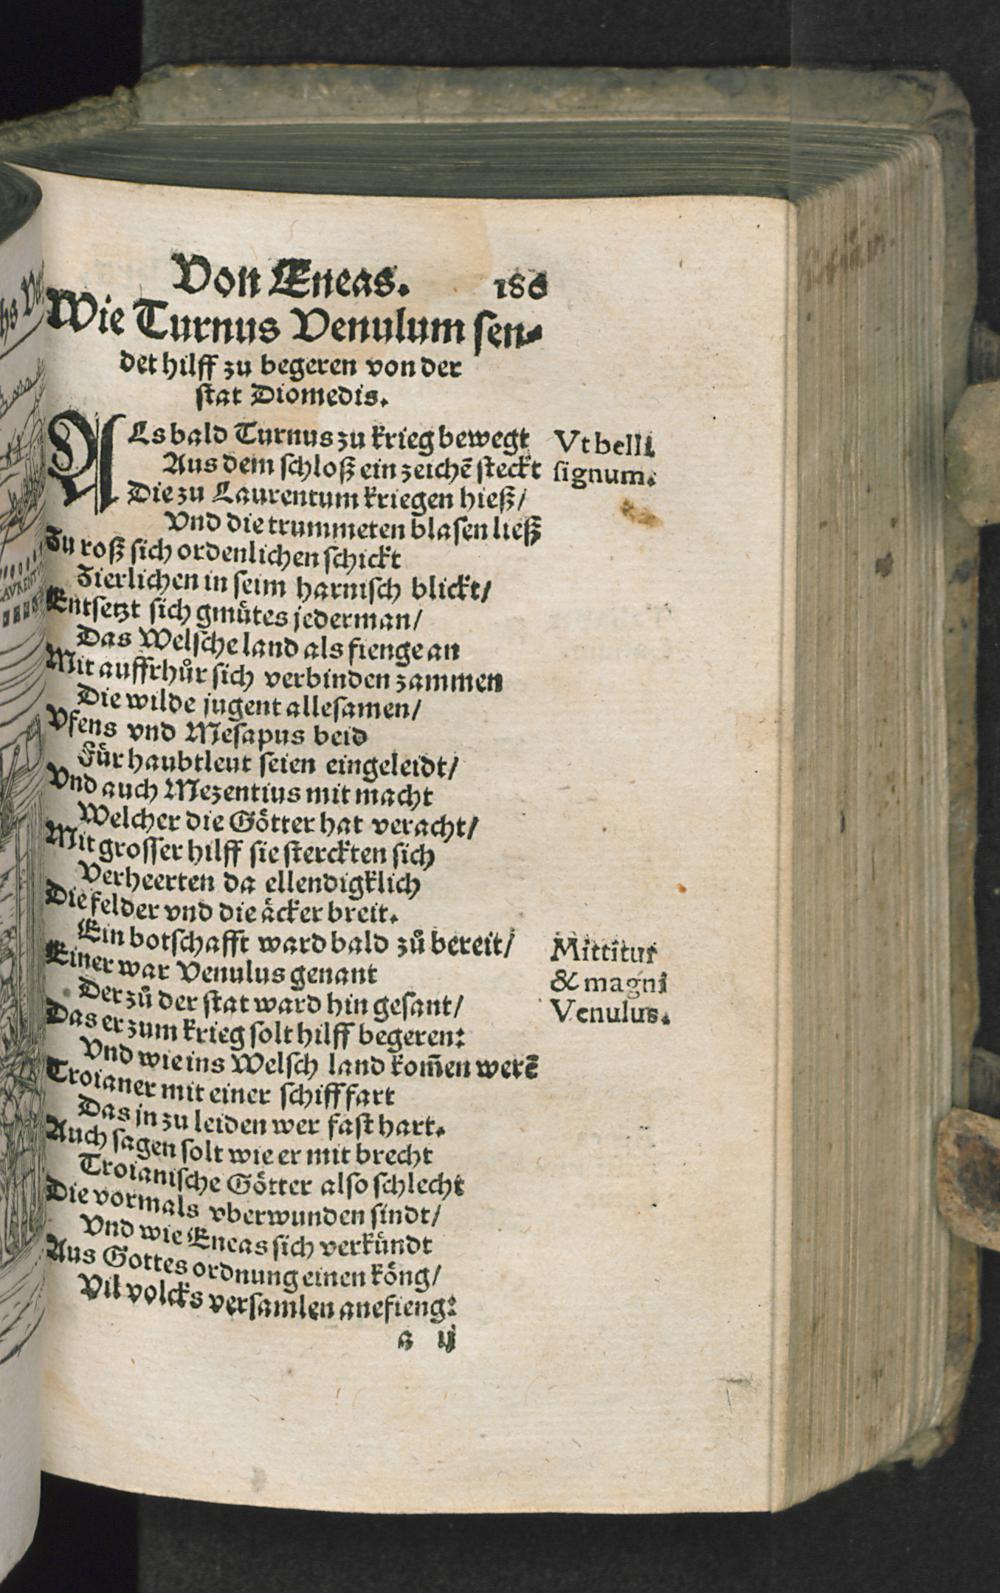 Von Eneas. 186
Wie Turnus Venulum sen⸗
det hilff zu begeren von der
stat Diomedis.
ALs bald Turnus zu krieg bewegt
Aus dem schloß ein zeichē steckt
Die zu Laurentum kriegen hieß/
Vnd die trummeten blasen ließ
Zu roß sich ordenlichen schickt
Zierlichen in seim harnisch blickt/
Entsetzt sich gmütes jederman/
Das Welsche land als fienge an
Mit auffrhůr sich verbinden zammen
Die wilde jugent allesamen/
Vfens vnd Mesapus beid
Für haubtleut seien eingeleidt/
Vnd auch Mezentius mit macht
Welcher die Götter hat veracht/
Mit grosser hilff sie sterckten sich
Verheerten da ellendigklich
Die felder vnd die äcker breit.
Ein botschafft ward bald zů bereit/
Einer war Venulus genant
Der zů der stat ward hin gesant/
Das er zum krieg solt hilff begeren:
Vnd wie ins Welsch land kom̄en werē
Troianer mit einer schifffart
Das jn zu leiden wer fast hart.
Auch sagen solt wie er mit brecht
Troianische Götter also schlecht
Die vormals vberwunden sindt/
Vnd wie Eneas sich verkündt
Aus Gottes ordnung einen köng/
Vil volcks versamlen anefieng:
a ij
Vt belli
signum.
Mittitur
& magni
Venulus.